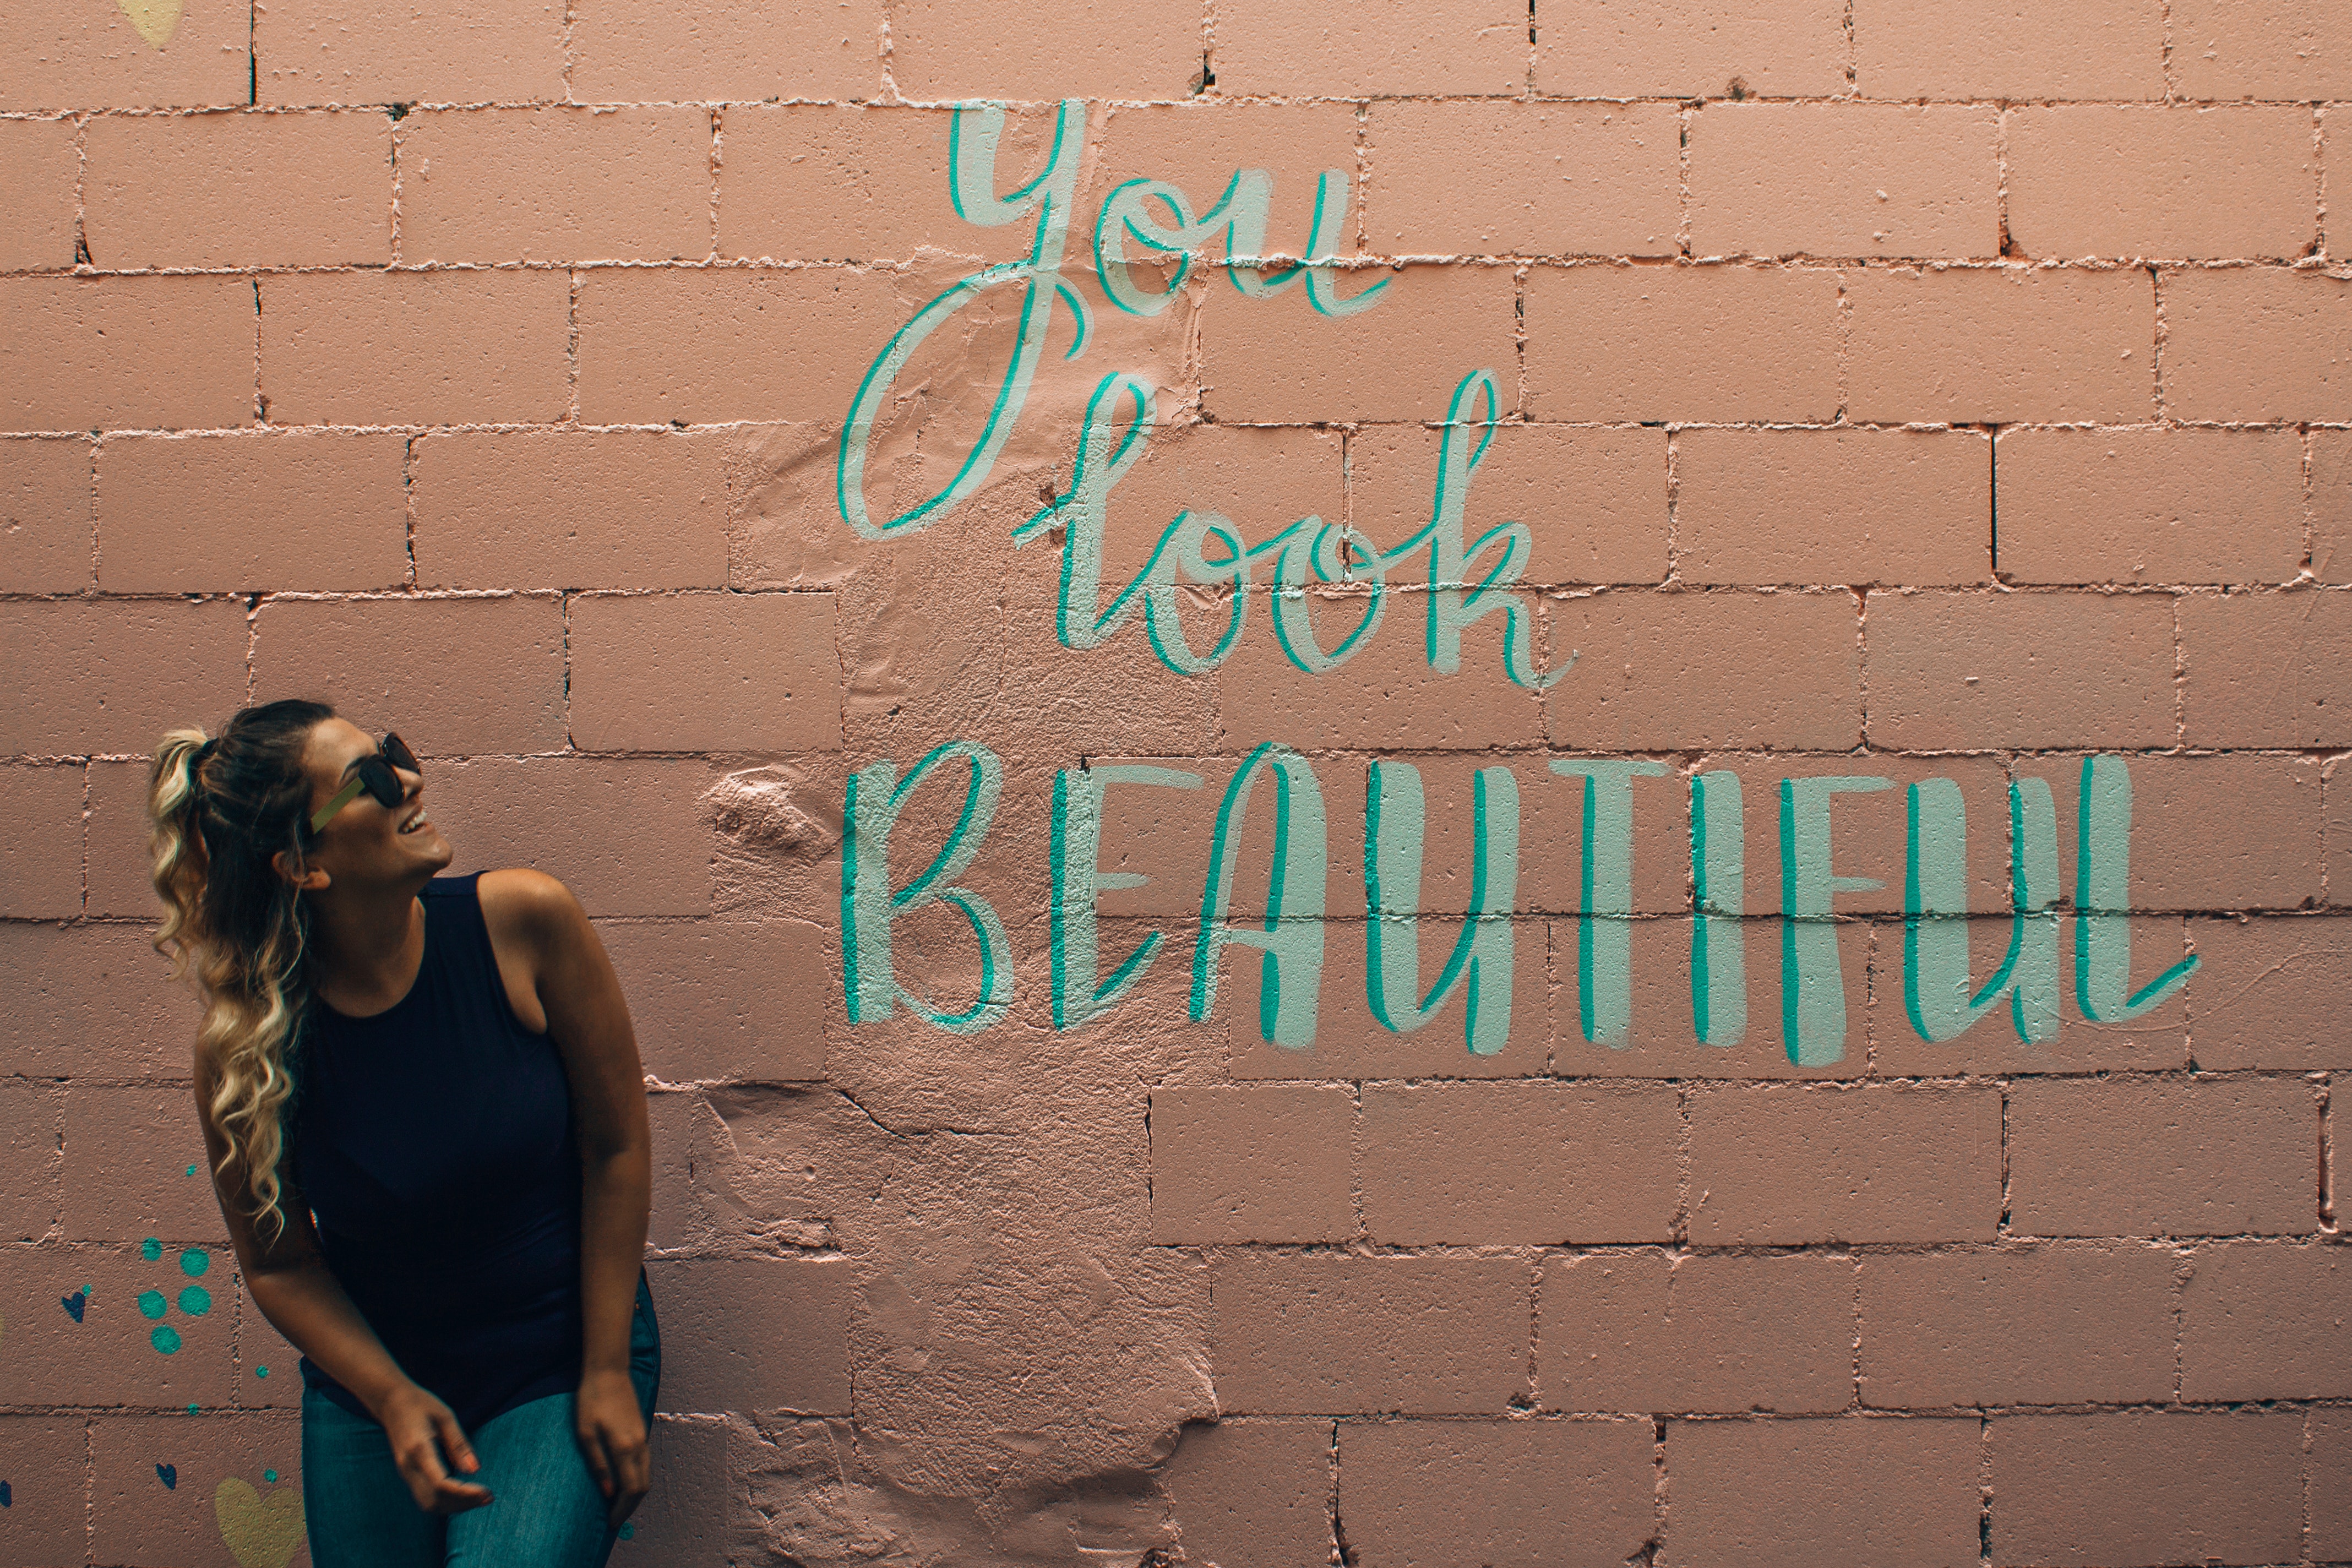 you
look
BEAUTIFUL